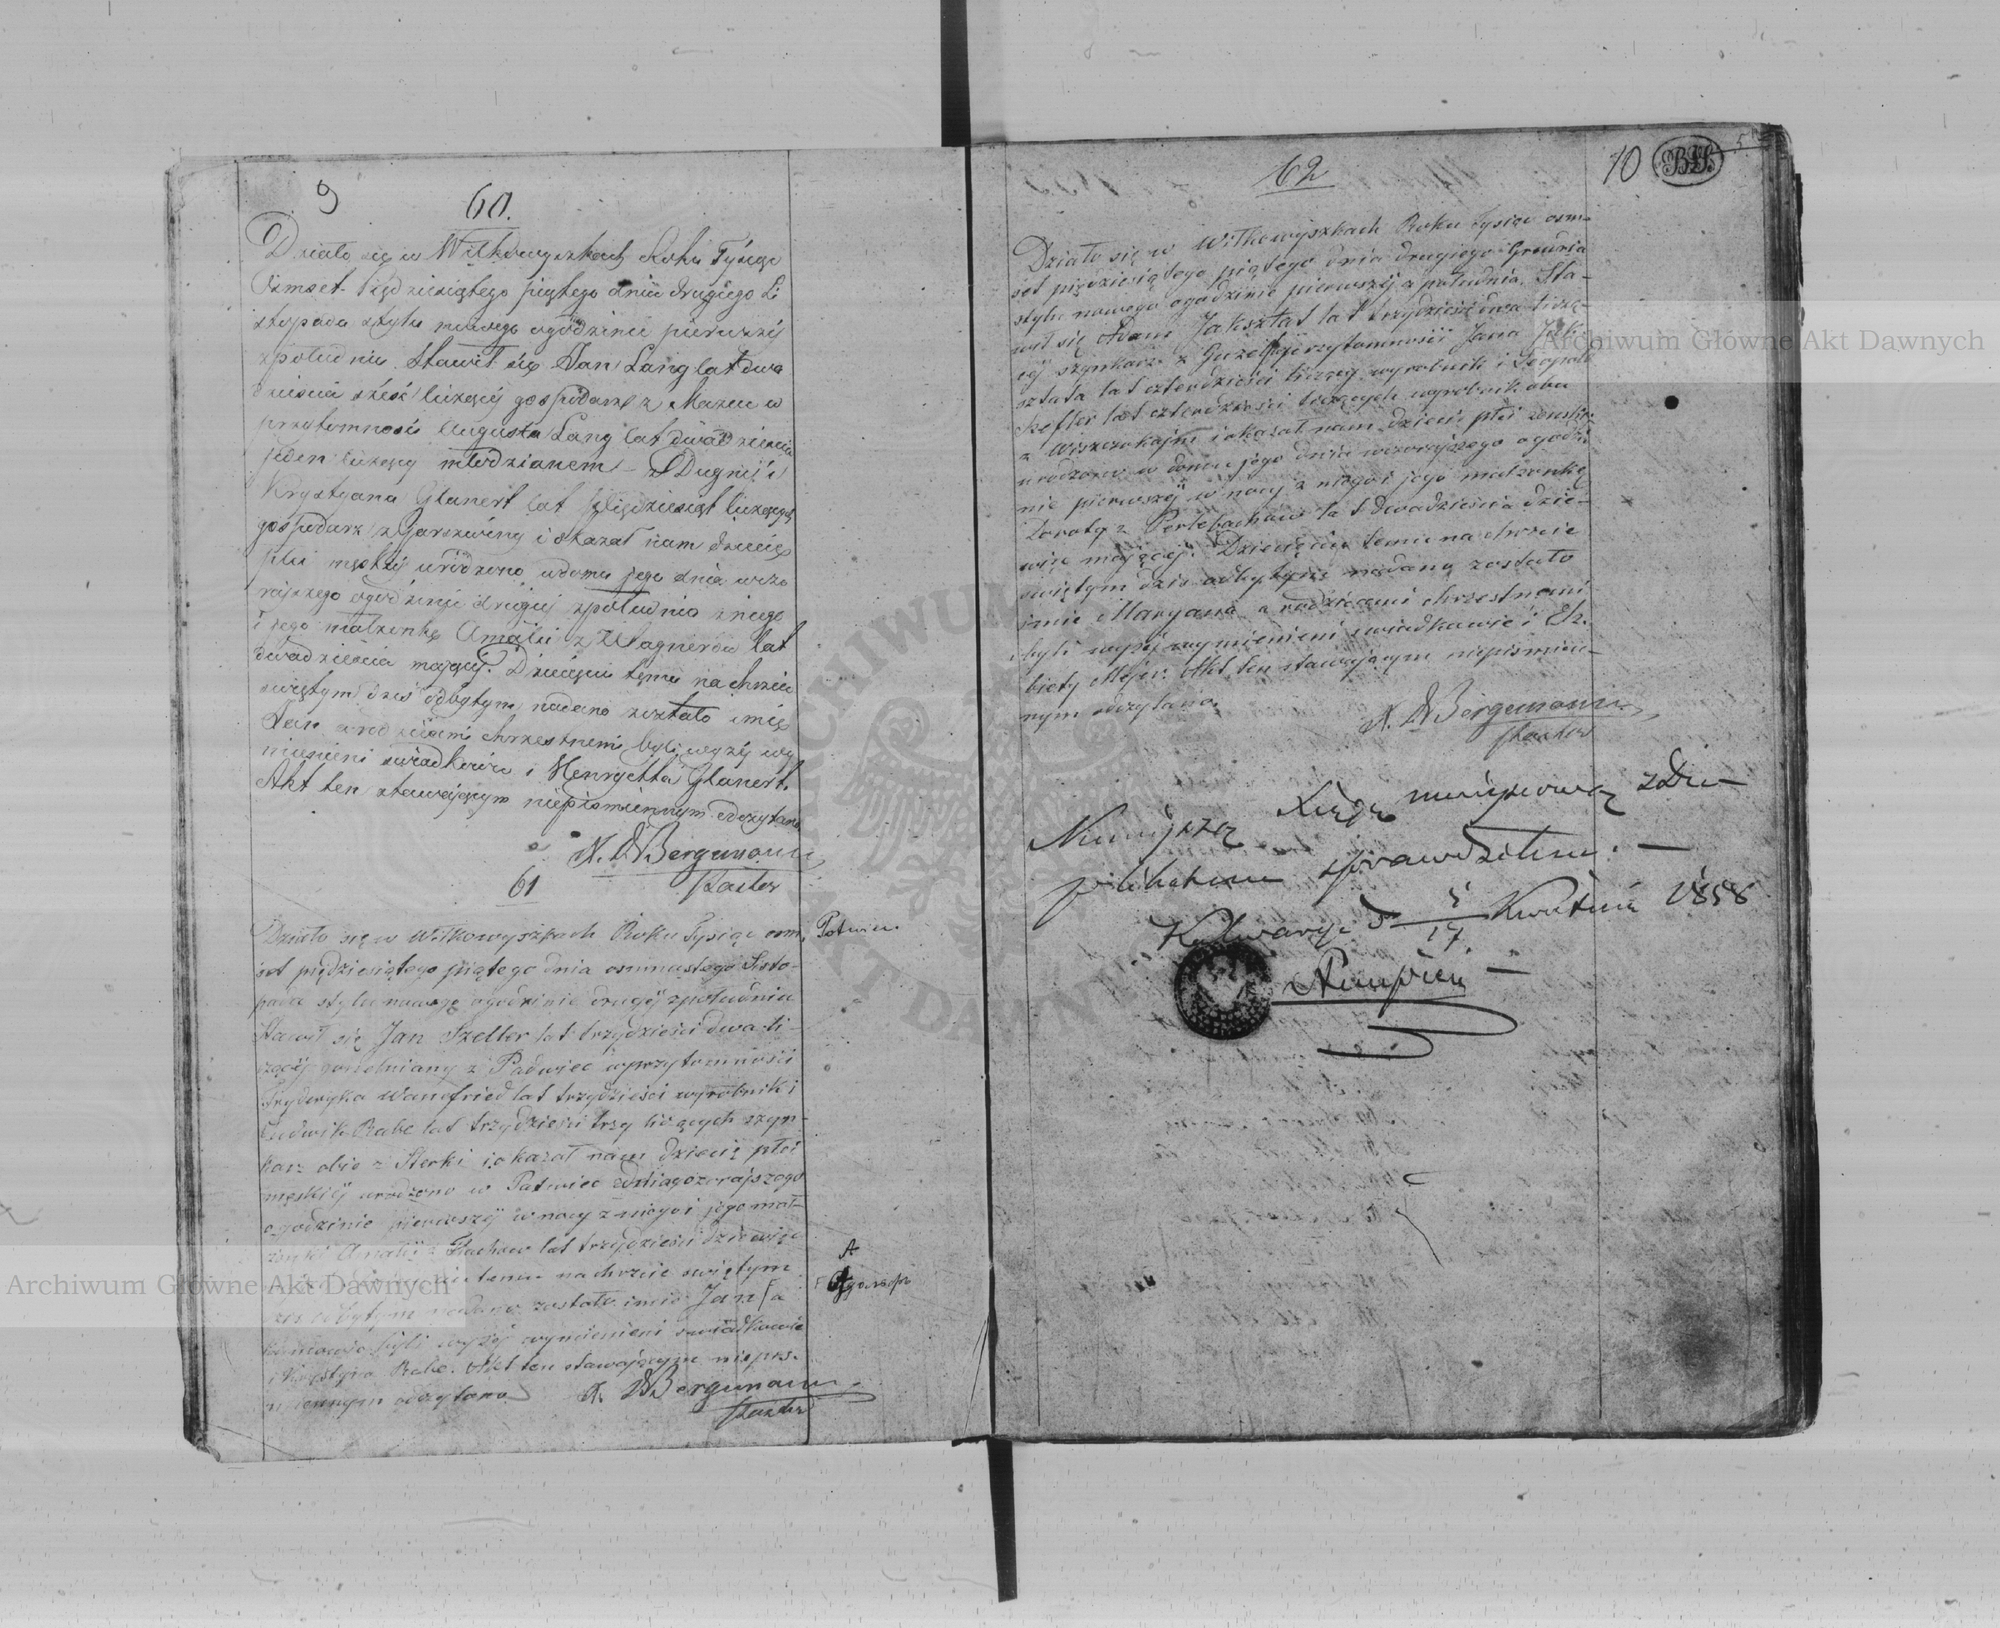 9
60.
Działo się w Wilkowyszkach Roku Tysiąc
Ośmset Pięździesiątego piątego dnia drugiego Li
stopada stylu nowego ogodzinie pierwszéj
zpołudniu Stawił się Jan Lang lat dwa
dzieścia sześć liczący gospodarz z Mazeu w
przytomności Augusta Lang lat dwadzieścia
jeden liczący młodzianem
Krystyana Glanert lat Pięździesiąt liczących
gospodarz z Garszwiny i okazał nam dziecię
płci męskiéj urodzone wdomu jego dnia wczo
rajszego ogodzinie drugiéj zpołudnia z niego
i jego małżonkę Amalii z Wagnerów lat
dwadzieścia mającéj. Dziecięciu temu na chrzcie
świętym dziś odbytym nadano zostało imię
Jan a rodzicami chrzestnemi byli wyżéj wy
mienieni świadkowie i Henryetta Glanert.
Akt ten stawającym niepismiennym odczytano
A. W Bergemann
Pastor
61
Działo się w Wilkowyszkach Roku Tysiąc ośm-
set pięździesiątego piątego dnia ośmnastego Listo-
pada stylu nowego ogodzinie drugéj zpołudnia
Stawił się Jan Szeller lat trzydzieści dwa li-
czący z Padwiec wprzytomności
Fryderyka Wannfried lat trzydzieści wyrobnik i
Ludwik Rabe lat trzydzieści trzy liczących szyn-
karz obie z Sterki i okazał nam dziecię płci
męskiéj urodzone w Patwiec
ogodzinie pierwszéj w nocy z niego i jego mał-
żonki lat trzydzieści dziewięć
temu na chrzcie świętym
odbytym nadano zostało imie Jan a
byli wyżéj wymienieni świadkowie
i Krystyna Rabe. Akt ten stawającym niepis-
miennym odczytano
A. W Bergemann
Pastor
Patwiec
A
62
10
Działo się w Wilkowyszkach Roku Tysiąc ośm-
set pięździesiątego piątego dnia drugiego Grudnia
stylu nowego ogodzinie pierwszéj z południa Sta-
wił się Adam Jaksztat lat trzydzieści dwa liczą-
céj szynkarz z przytomności Jana Jak-
sztata lat czterdzieści liczący wyrobnik i Leopold
Szefler lat czterdzieści liczących wyrobnik obu
z Wiszczokajm i okazał nam dziecię płci żeńskiéj
urodzone w domu jego dnia wczorajszego ogodzi-
nie pierwszéj w nocy z niego i jego małżonkę
Dorotę z Perlebachów lat dwadzieścia dzie-
więć mającéj. Dziecięciu temu na chrzcie
świętym dziś odbytym nadano zostało
imie Maryana a rodzicami chrzestnemi
byli wyżéj wymienieni świadkowie i Elż.
biety Méjer. Akt ten stawającym niepismien-
nym odczytano.
A. W Bergemann
Pastor
Niniejszą Księgę mniejszową z Du-
plikatem sprawdziłem. —
Kalwarja d 5/17 Kwietnia 1858
Archiwum Główne Akt Dawnych
Archiwum Główne Akt Dawnych
ARCHIWUM
AKT DAWNYCH